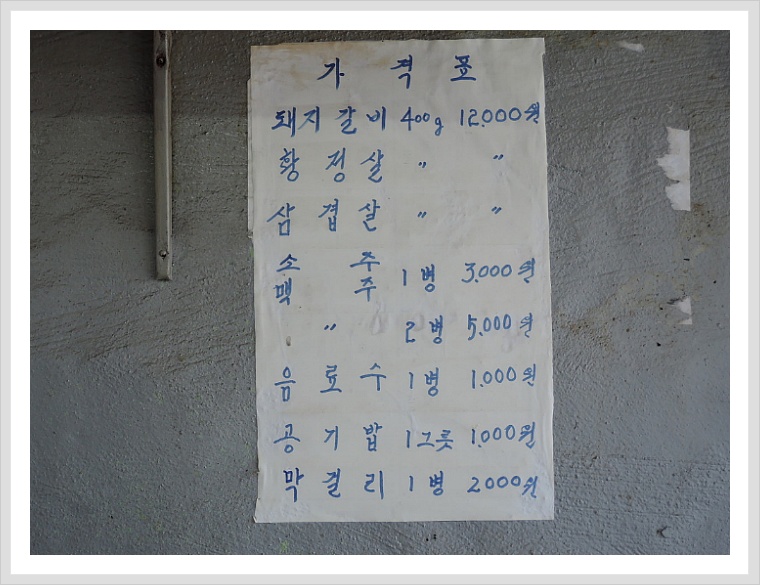 가 격 표
돼지 갈비 400g 12.000원
황 정 살 〃 〃
삼 겹 살 〃 〃
소 주
맥 주 1 병 3.000원
〃 2 병 5.000원
음 료 수 1 병 1.000원
공 기 밥 1 그릇 1.000원
막 걸 리 1 병 2000원